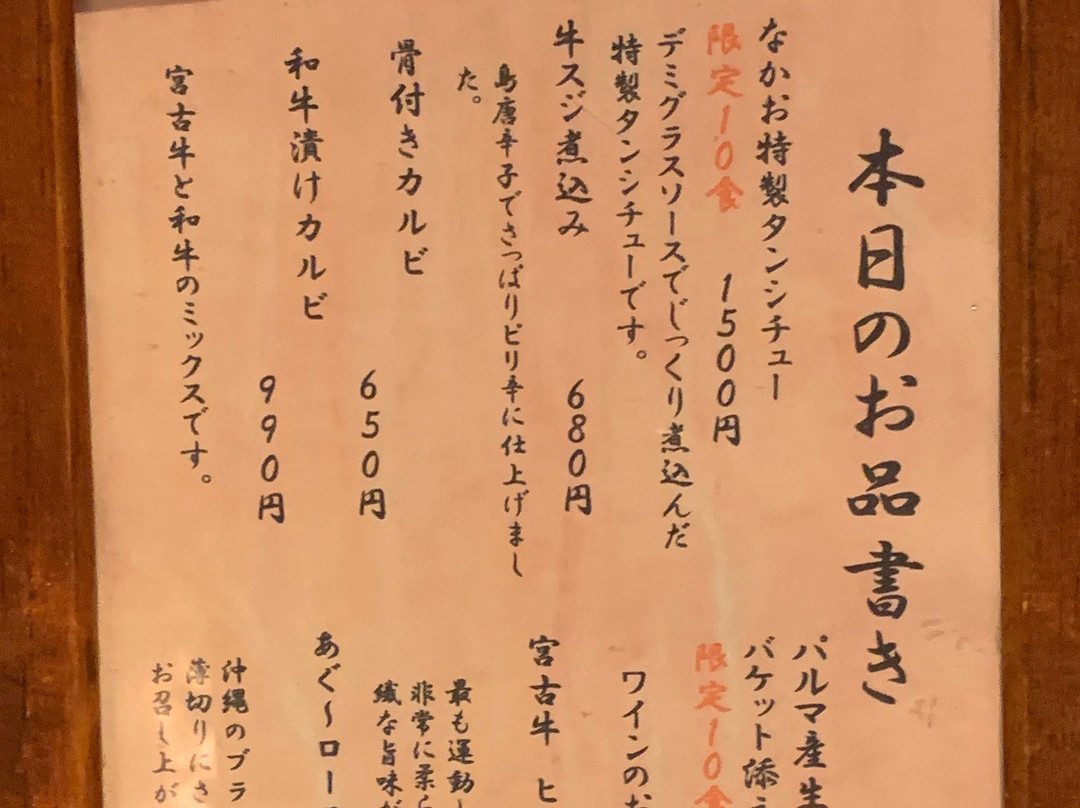 本日のお品書き
なかお特製タンシチュー
限定10食 1500円
デミグラスソースでじっくり煮込んだ
特製タンシチューです。
牛スジ煮込み 680円
島唐辛子でさっぱりピリ辛に仕上げまし
た。
骨付きカルビ 650円
和牛漬けカルビ 990円
宮古牛と和牛のミックスです。
パルマ産生
バケット添え
限定10食
ワインのお
宮古牛 ヒ
最も運動し
非常に柔ら
繊な旨味が
あぐ〜ロー
沖縄のブラ
薄切りにさ
お召し上が